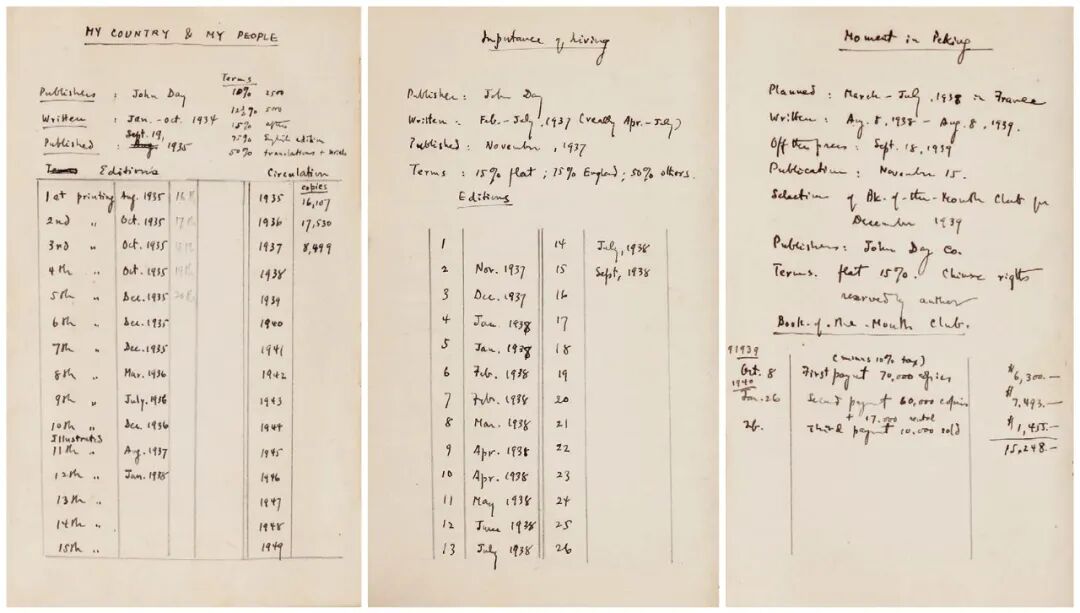 MY COUNTRY & MY PEOPLE
Terms
Publishers : John Day 10% 2500
12½% 500
Written : Jan. - Oct. 1934 15% after
Sept. 19,
Published : Aug 1935 75% English edition
50% translations + serials
Terms Editions Circulation
copies
1st printing Aug. 1935 16th 1935 16,107
2nd " Oct. 1935 17th 1936 17,530
3rd " Oct. 1935 18th 1937 8,499
4th " Oct. 1935 19th 1938
5th " Dec. 1935 20th 1939
6th " Dec. 1935 1940
7th " Dec. 1935 1941
8th " Mar. 1936 1942
9th " July. 1936 1943
10th " Dec. 1936 1944
Illustrated
11th " Aug. 1937 1945
12th " Jan. 1938 1946
13th " 1947
14th " 1948
15th " 1949
Importance of Living
Publisher : John Day
Written : Feb. - July, 1937 (really Apr. - July)
Published : November, 1937
Terms : 15% flat ; 75% England ; 50% others.
Editions
1 14 July, 1938
2 Nov. 1937 15 Sept, 1938
3 Dec. 1937 16
4 Jan. 1938 17
5 Jan. 1938 18
6 Feb. 1938 19
7 Feb. 1938 20
8 Mar. 1938 21
9 Apr. 1938 22
10 Apr. 1938 23
11 May 1938 24
12 June 1938 25
13 July 1938 26
Moment in Peking
Planned : March - July, 1938 in France
Written : Aug. 8, 1938 - Aug. 8, 1939.
Off the press : Sept. 18, 1939
Publication : November 15.
Selection of Bk.-of-the-Month Club for
December 1939
Publishers : John Day Co.
Terms. flat 15%. Chinese rights
reserved by author
Book-of-the-Month Club.
1939 (minus 10% tax)
Oct. 8 First paymt 70,000 copies $6,300.—
1940
Jan. 26 Second paymt 60,000 copies $7,493.—
+ 17,000
26. Third paymt 10,000 sold $1,455.—
15,248.—